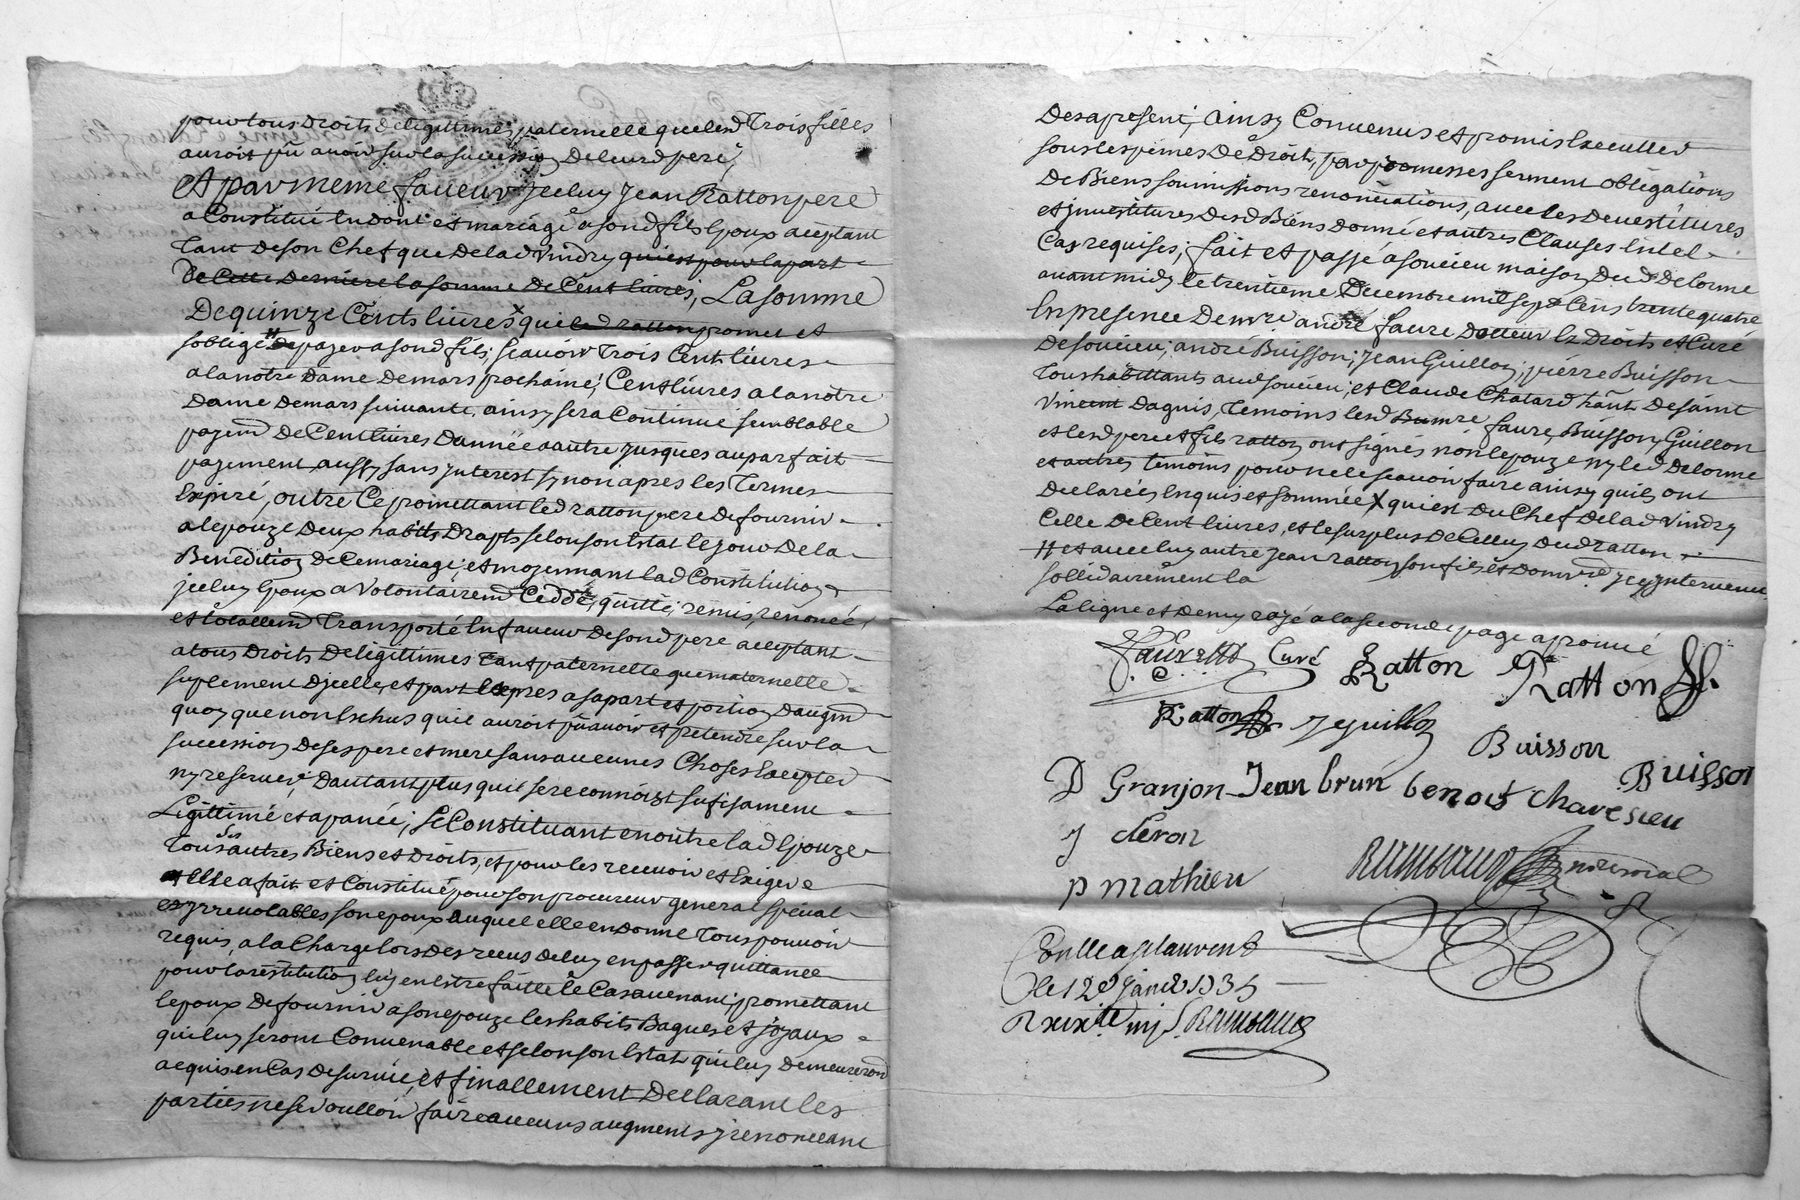 pour tous Droits de legittimes paternelle que lesd Trois filles
auroit pû avoir sur la succession deleurd pere,
Et par meme faveur Jceluy Jean Ratton pere
a Constitué En dont et mariage asond fils Epoux aceptant
Tant deson Chef que delad Vindry quiest pour la part
De Cette Derniere la somme de Cent livres, La somme
De quinze Cents livres x que led ratton promet et
soblige # De payer asond fils; scavoir Trois Cent livres
ala notre Dame Demars prochaine, Cent livres ala notre
Dame Demars suivante, ainsy sera Continué semblable
payemt De Cent livres Dannée aautre Jusques au parfait
payement, aussy sans Jnterest synon apres les Termes
Expiré, outre Ce promettant led ratton pere De fournir
a lepouze Deux habits Drapts selon son Estat le jour De la
Benedition de Ce mariage, et moyennant lad Constitution
jceluy Epoux a Volontairemt Ceddé, quitté, remis, renoncé,
et totallemt Transporté En faveur Desond pere aceptant
atous Droits De legittimes Tant paternelle que maternelle
suplement Djcelle, et part Egres asapart et portion Daugmt
quoy que non Eschus quil auroit pû avoir et pretendre sur la
succession Deses pere et mere sans aucunes Choses Excepter
ny reserver, Dautant plus quil se reconnoist sufisament
Legittimé et apanéé; se Constituant en outre lad Epouze
Tous ses autres Biens et Droits, et pour les recevoir et Exiger
Elle a fait et Constitué pour son procureur general spécial
et jrrevolables son epoux auquel elle en donne Tous pouvoir
requis, ala Charge lors des recus deluy en passer quittance
pour la restitution luy en Estre faitte le Cas avenant, promettant
lepoux De fournir ason epouze les habits Bagues et joyaux
qui luy seront Convenable et selon son Estat qui luy Demeureront
acquis en Cas de survie, et finallement Declarant les
parties ne se voulloir faire aucuns augments y renonceant
Des apresent; ainsy Convenus et promis Executter
sous les peines De Droit, par promesses serment obligations
De Biens soumissions renonciations, avec les Devestitures
et jnvestitures Desd Biens donné et autres Clauses En tel
Cas requises; fait et passé a soucieu maison Dud Delorme
avant midy le trentieme Decembre mil sept Cens trente quatre
En presence De mre andré faure Docteur Ez Droits et Curé
De soucieu; andré Buisson; Jean Guillon; pierre Buisson
Tous habittants aud soucieu; et Claude Chatard hânt De saint
Vincent Daguis, Temoins lesd mre faure, Buisson, Guillon
et lesd pere et fils ratton ont signés non lepouze ny led Delorme
et autres temoins pour ne le scavoir faire ainsy quils ont
Declarées Enquis et sommée X qui est Du Chef De lad Vindry
Celle De Cent livres, et le surplus De Celluy dud ratton
# et avec luy autre Jean ratton son fils et Donnre jcy jntervenu
sollidairement la
La ligne et Demy rayé ala seconde page aprouvé
Faure Curé Ratton Ratton
Ratton J Guillon
Buisson
Buisson
D Granjon Jean brun benoit Chavesieu
J cleron
P Mathieu
Rambaud
Conlle a St laurent
le 12e Janer 1735
R Rambaud